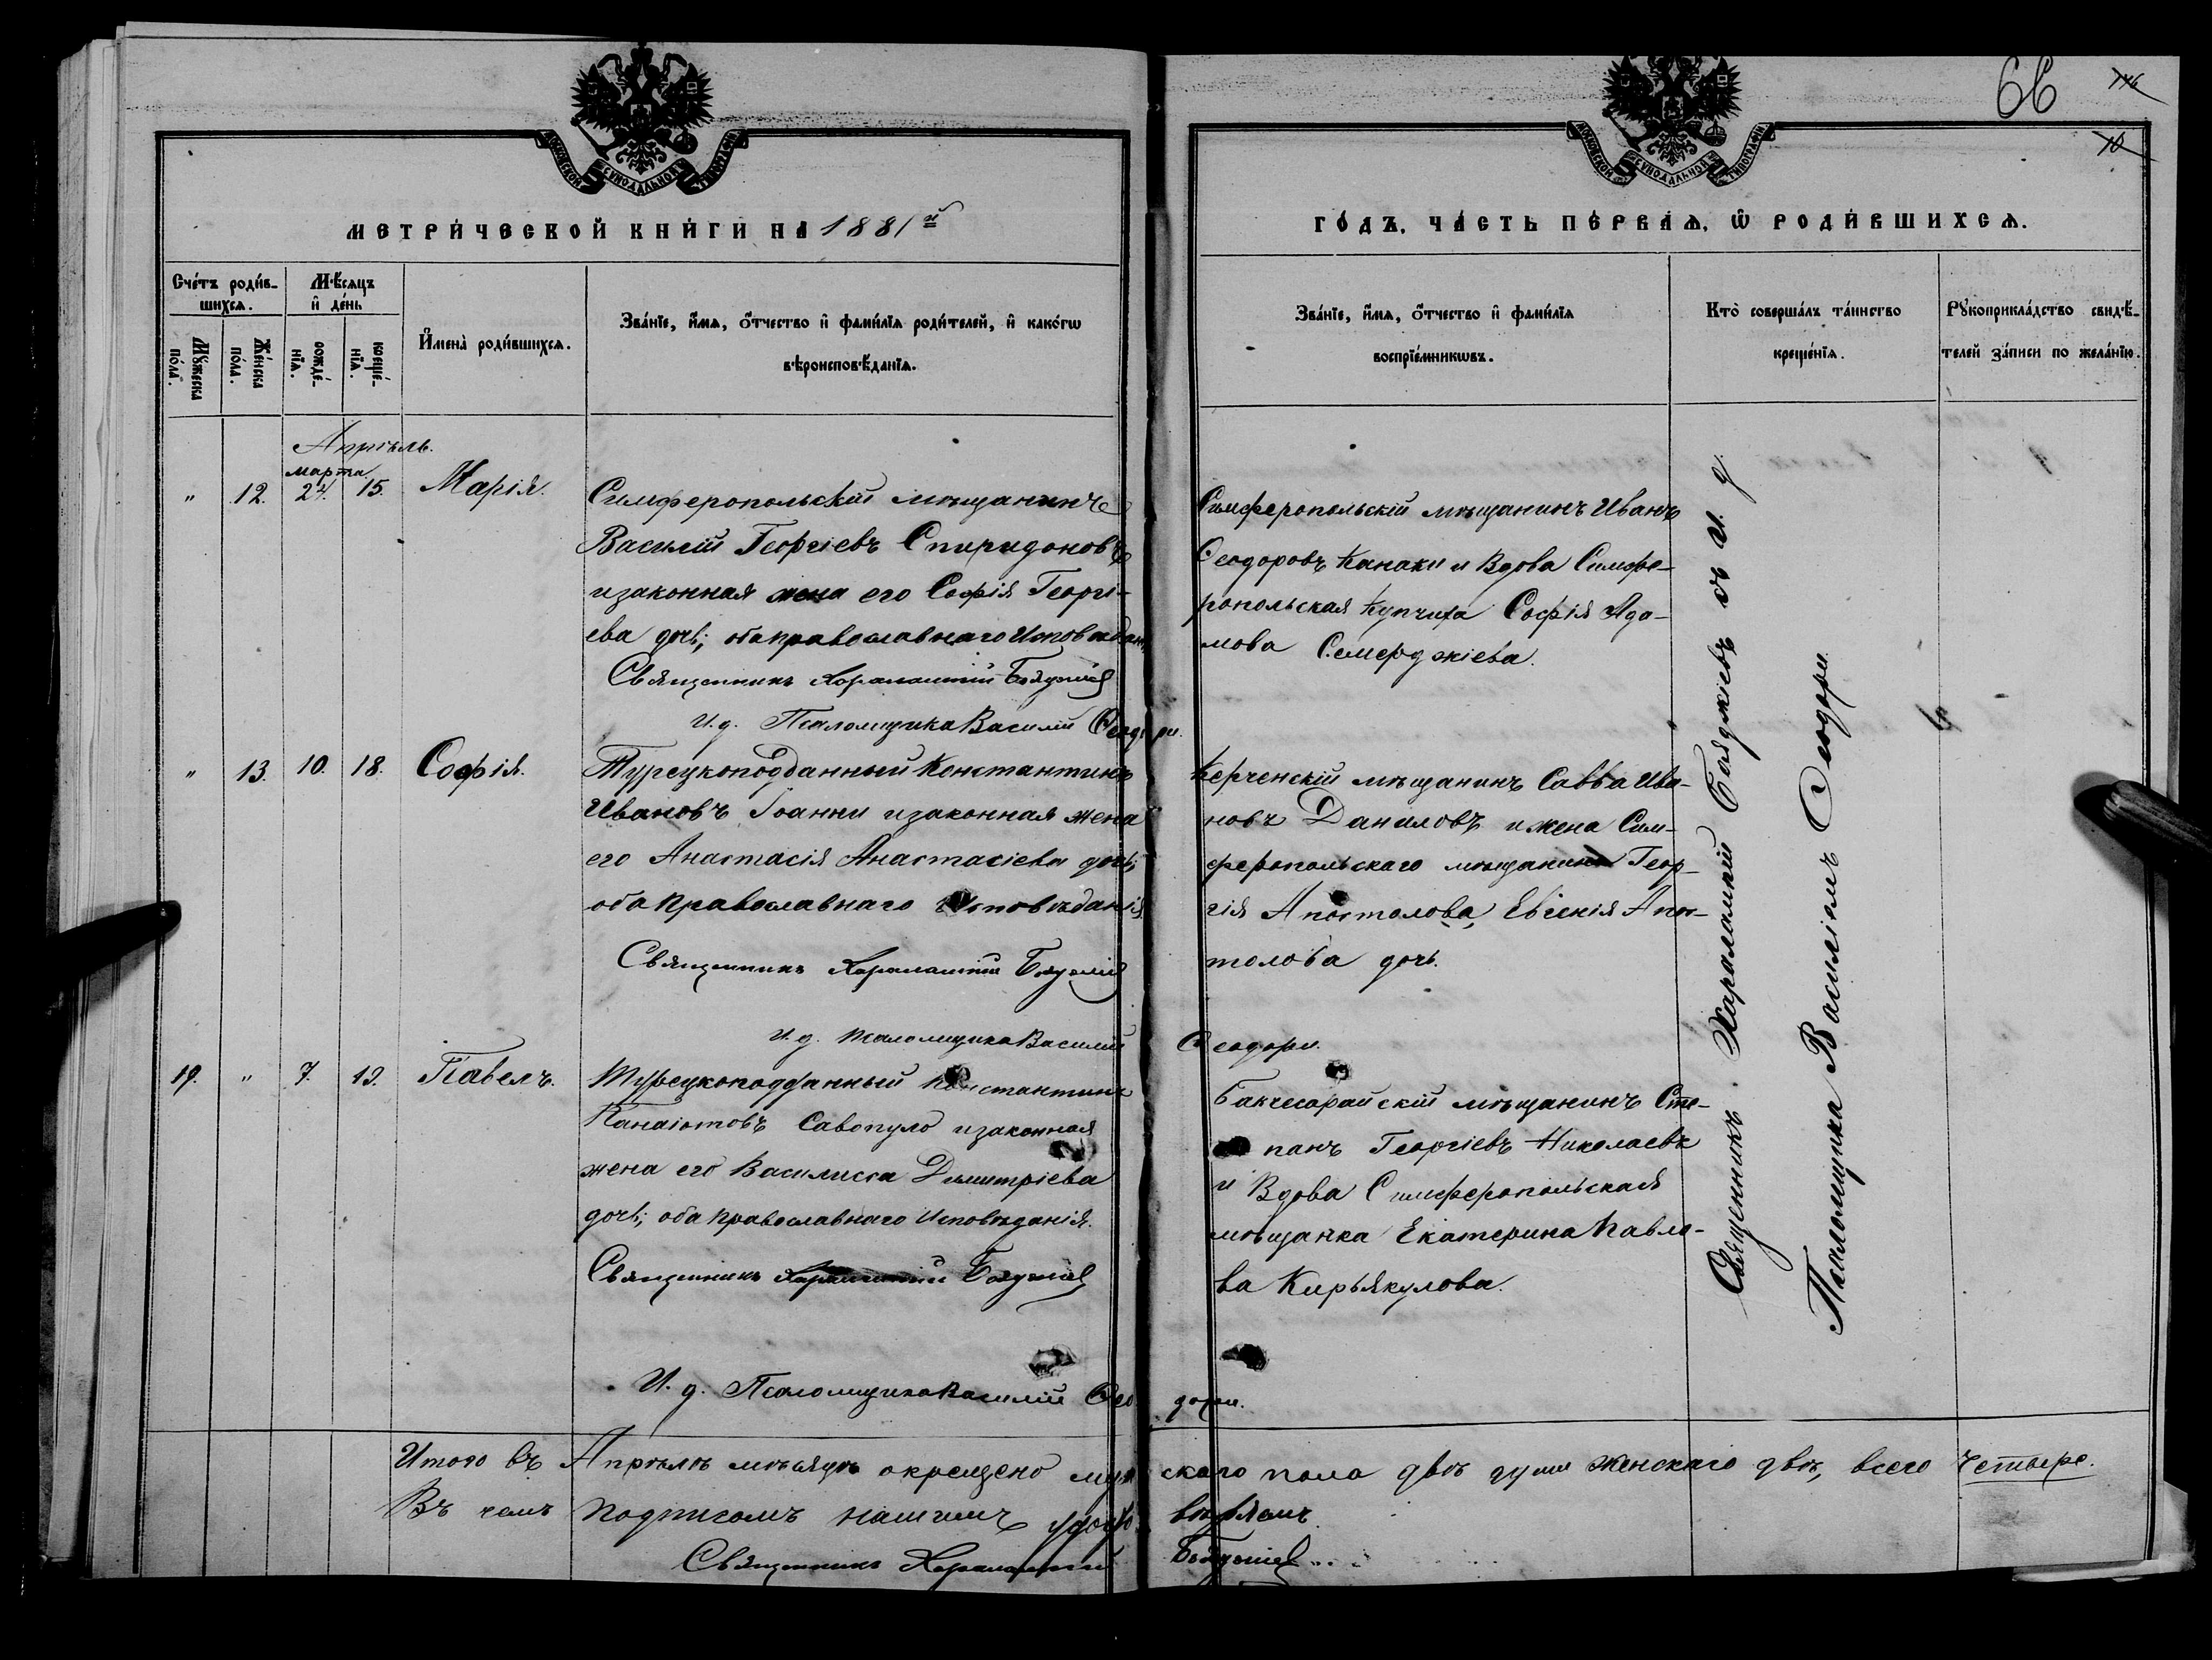 66
116
10
МОСКОВСКОЙ СѴНОДАЛЬНОЙ ТИПОГРАФІИ
МОСКОВСКОЙ СѴНОДАЛЬНОЙ ТИПОГРАФІИ
МЕТРИ́ЧЕСКОЙ КНИ́ГИ НА 1881й
ГО́ДЪ, ЧА́СТЬ ПЕ́РВАѦ, Ѽ РОДИ́ВШИХСѦ.
Сче́тъ роди́в-
шихсѧ.
Мꙋ́жеска по́ла.
Же́нска по́ла.
Мѣ́сѧцъ
и҆ де́нь
рожде́-нїѧ.
креще́-нїѧ.
И҆мена̀ роди́вшихсѧ.
Зва́нїе, и҆́мѧ, ѻ҆́тчество и҆ фами́лїѧ роди́телей, и҆ како́гѡ
вѣроисповѣ́данїѧ.
Зва́нїе, и҆́мѧ, ѻ҆́тчество и҆ фами́лїѧ
воспрїе́мникѡвъ.
Кто̀ соверша́лъ та́инство
креще́нїѧ.
Рꙋкоприкла́дство свидѣ́-
телей за́писи по жела́нїю.
Апрѣль.
марта
" 12. 24. 15. Марія.
Симферопольскій мѣщанинъ
Василій Георгіевъ Спиридоновъ
и законная жена его Софія Георгі-
ева дочь; оба православнаго Исповѣдан.
Священникъ Харалампій Бояджіев
И. д. Псаломщика Василій Ѳеодори.
Симферопольскій мѣщанинъ Иванъ
Ѳеодоровъ Канаки и Вдова Симфе-
ропольская Купчиха Софія Ада-
мова Семерджіева.
" 13. 10. 18. Софія.
Турецкоподданный Константинъ
Ивановъ Іоанни и законная жена
его Анастасія Анастасіева дочь;
оба Православнаго Исповѣданія
Священникъ Харалампій Бояджіев
И. д. Псаломщика Василій Ѳеодори.
Керченскій мѣщанинъ Савва Ива-
новъ Даниловъ и жена Сим-
феропольскаго мѣщанина Геор-
гія Апостолова, Евгенія Апос-
толова дочь.
19. " 7. 19. Павелъ.
Турецкоподданный Константинъ
Панаіотовъ Савопуло и законная
жена его Василисса Димитріева
дочь; оба Православнаго Исповѣданія.
Священникъ Харалампій Бояджіев
И. д. Псаломщика Василій Ѳеодори.
Бакчесарайскій мѣщанинъ Сте-
панъ Георгіевъ Николаевъ
и Вдова Симферопольская
мѣщанка Екатерина Павло-
ва Кирьякулова.
Священникъ Харалампій Бояджіевъ съ И. д.
Псаломщика Василіемъ Ѳеодори.
Итого въ Апрѣлѣ мѣсяцѣ окрещено мужскаго пола двѣ души женскаго двѣ, всего четыре.
Въ чемъ подписомъ нашимъ удостовѣряемъ
Священникъ Харалампій Бояджіев